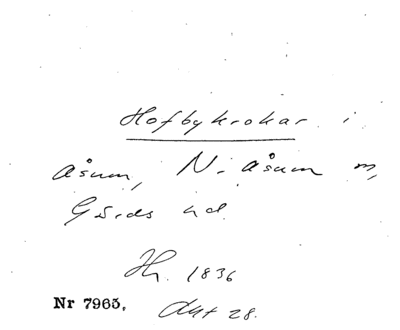 Hofbykrokar i
Åsum, N. Åsum m,
Gärds hd
Hr. 1836
Nr 7965, Akt 28.